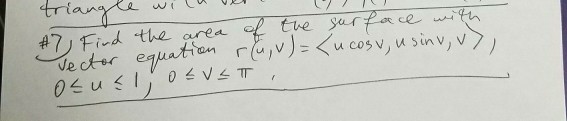 triangle with ver
#7) Find the area of the surface with
vector equation r(u,v) = <u cos v, u sin v, v>,
0 ≤ u ≤ 1, 0 ≤ v ≤ π